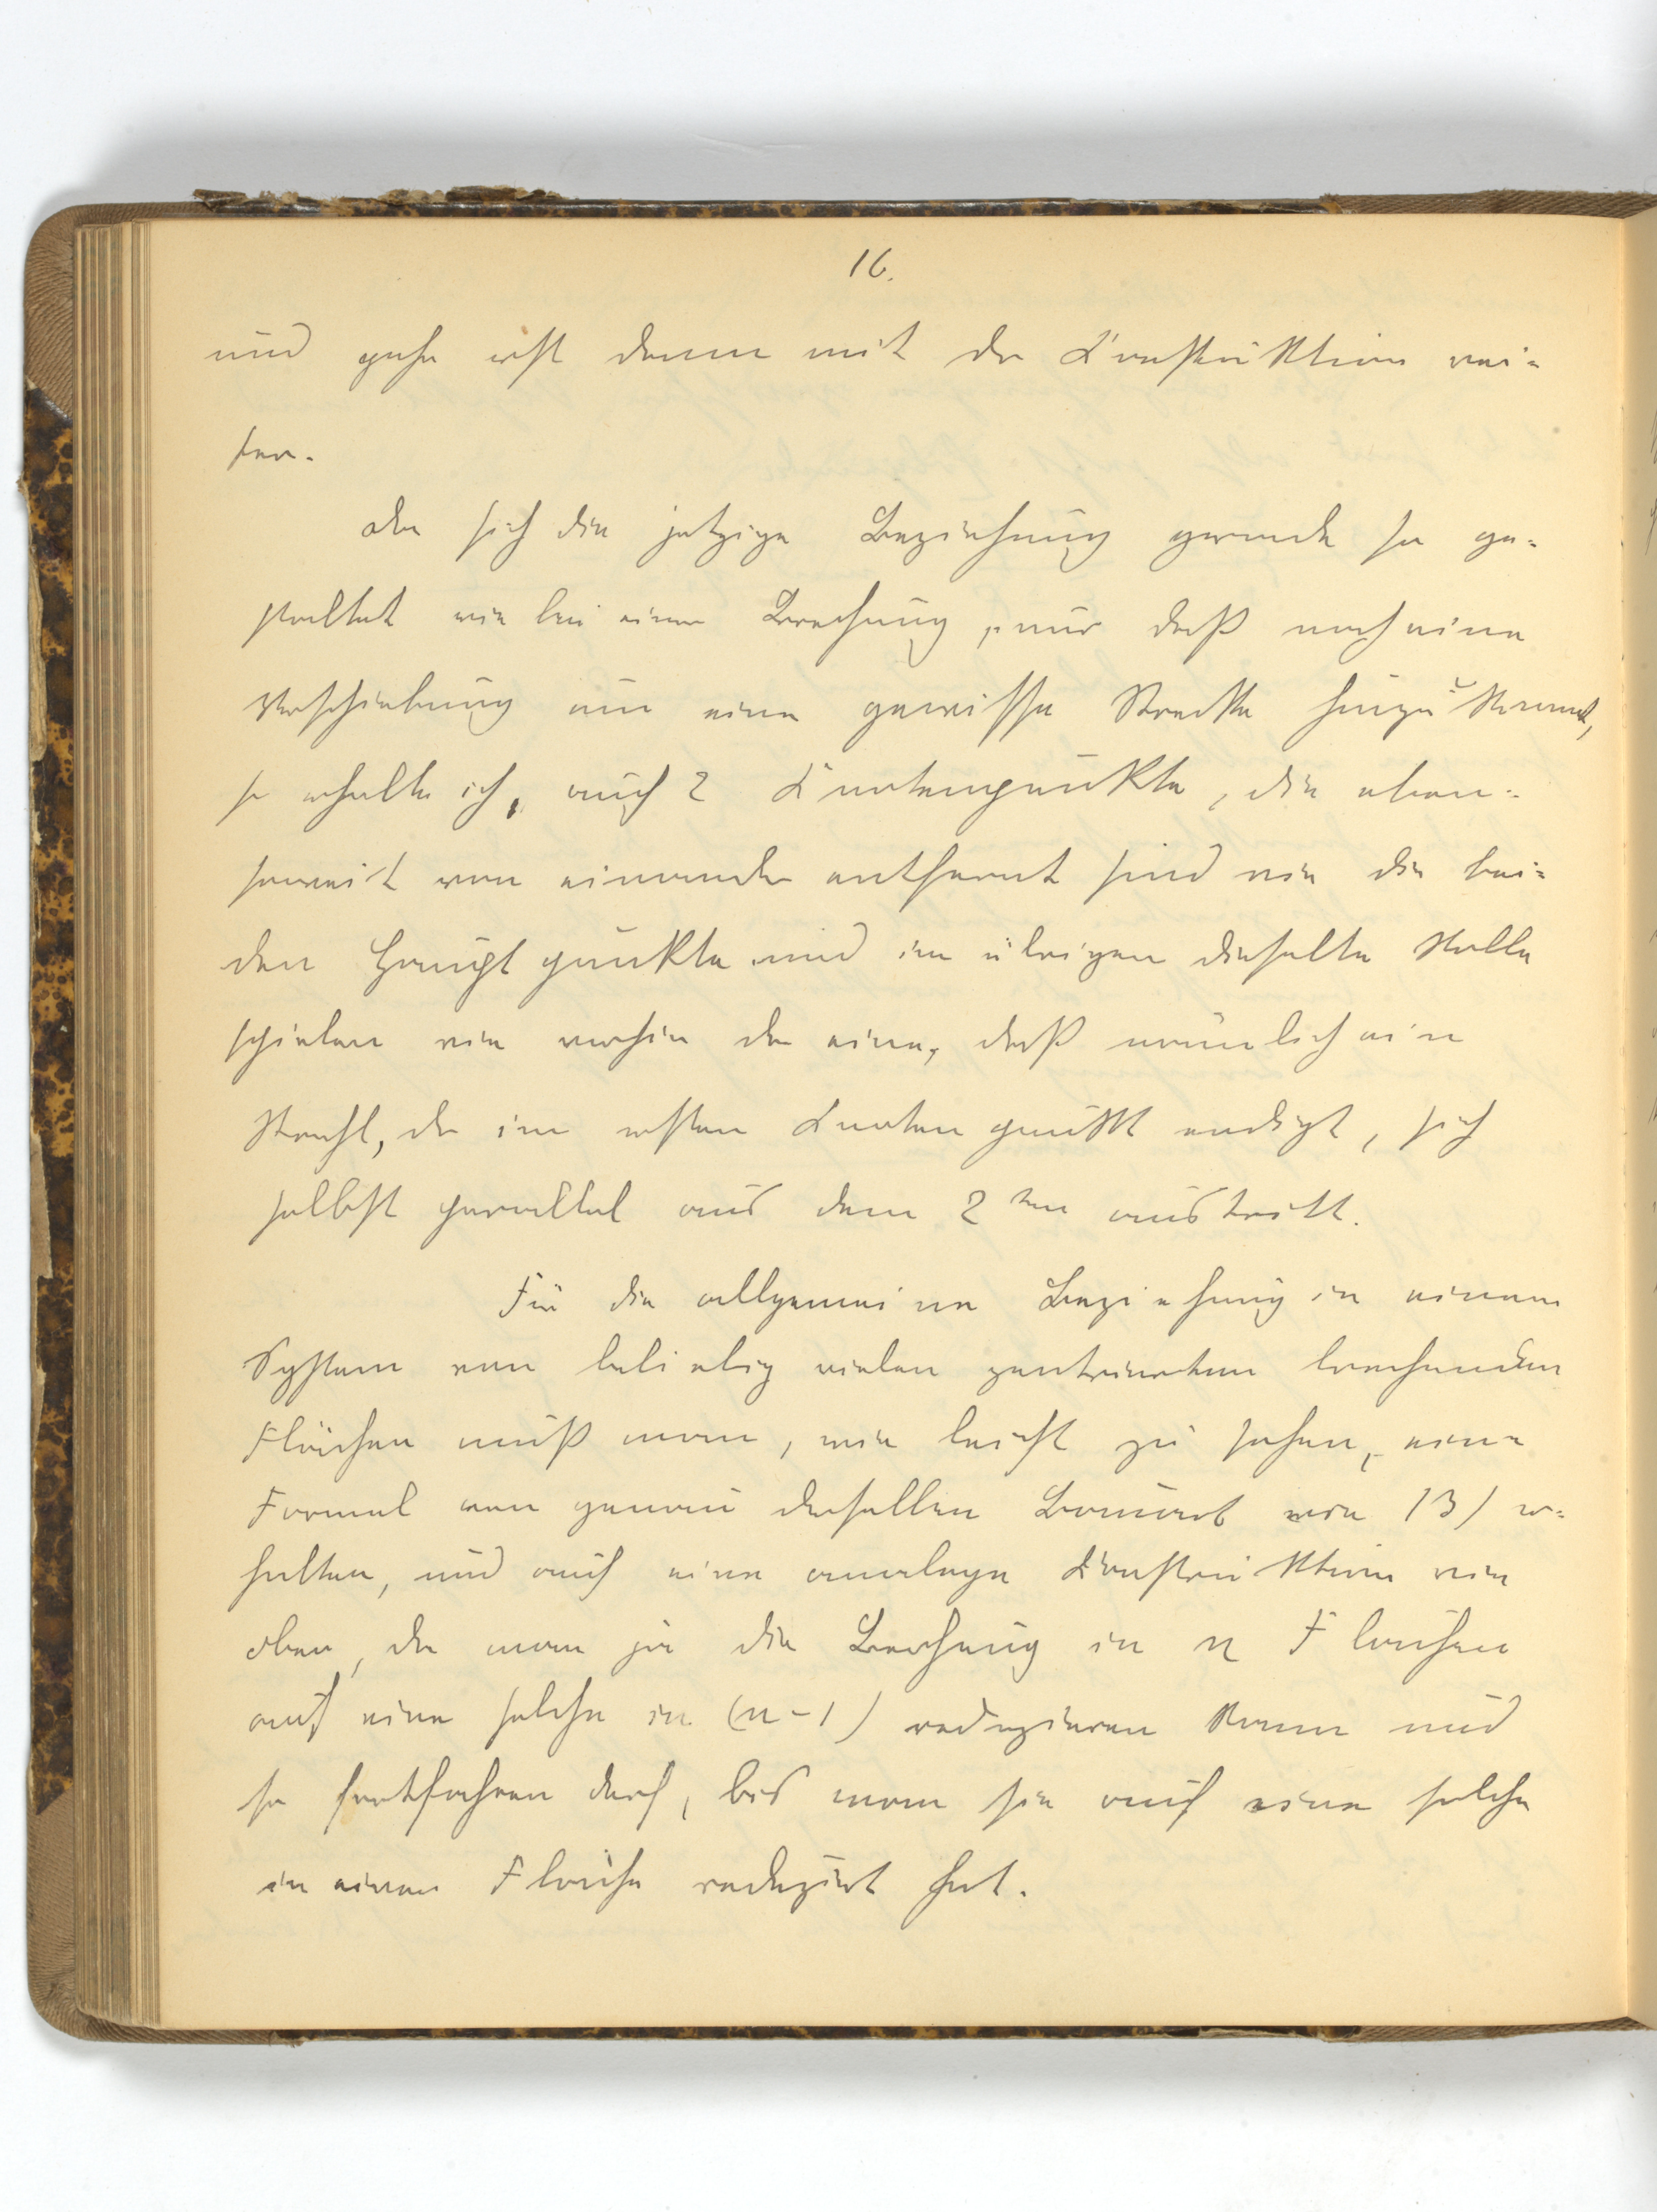 16.
und gehe erst dann mit der Konstruktion wei-
ter.
Da sich die jetzige Beziehung gerade so ge-
staltet wie bei einer Brechung, nur daß noch eine
Verschiebung um eine gewisse Strecke hinzukommt,
so erhalte ich, auch 2 Knotenpunkte, die eben-
soweit von einander entfernt sind wie die bei-
den Hauptpunkte und im übrigen dieselbe Rolle
spielen wie vorhin der eine, daß nämlich ein
Strahl, der im ersten Knotenpunkt endigt, sich
selbst parallel aus dem 2ten austritt.
Für die allgemeine Beziehung in einem
System von beliebig vielen zentrierten brechenden
Flächen muß man, wie leicht zu sehen, eine
Formel von genau derselben Bauart wie 13) er-
halten, und auch eine analoge Konstruktion wie
oben, da man ja die Brechung in n Flächen
auf eine solche in (n-1) reduzieren kann und
so fortfahren darf, bis man sie auf eine solche
in einer Fläche reduziert hat.